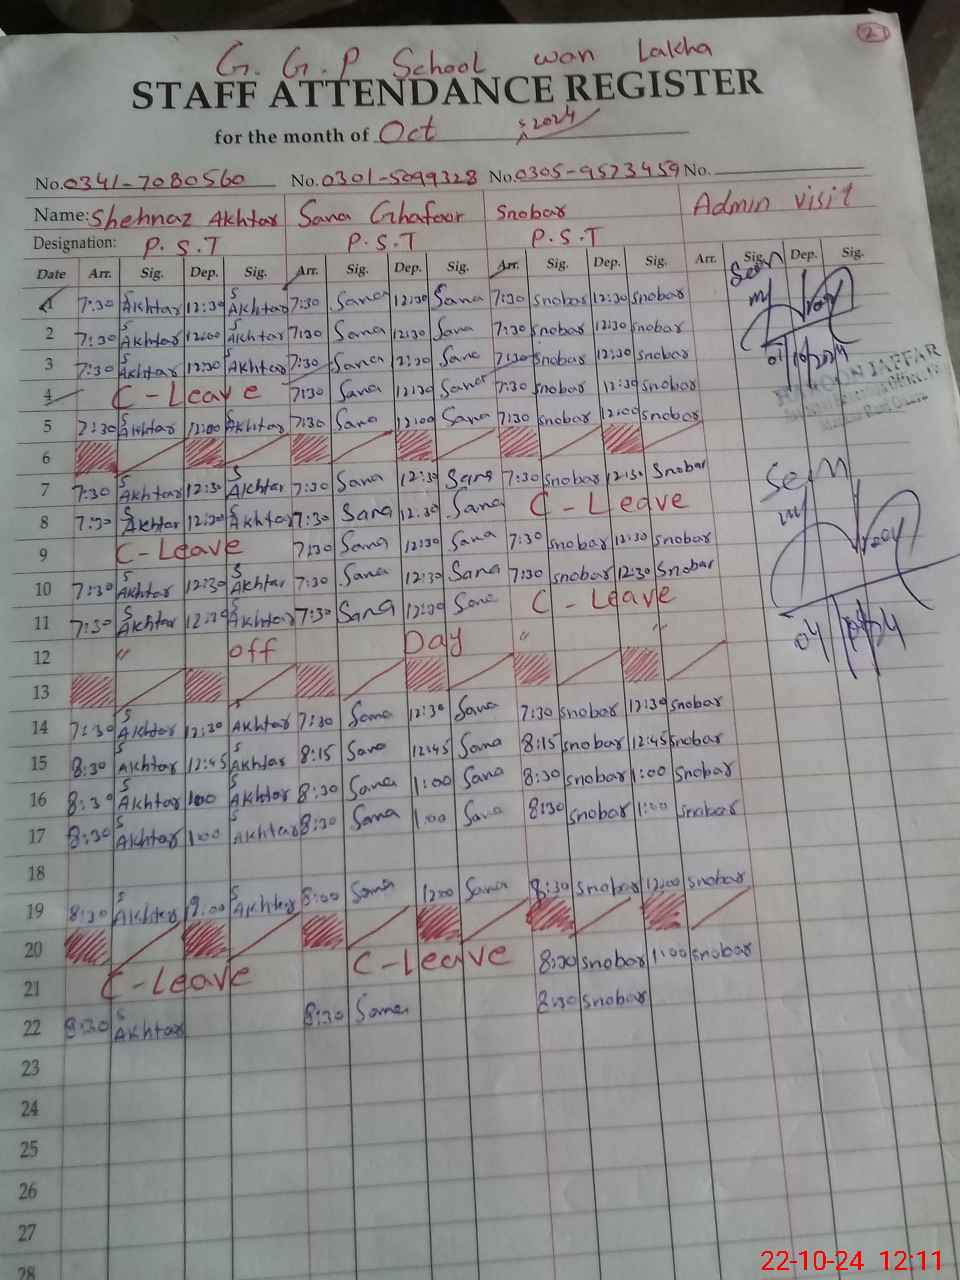 21
G. G. P School wan Lakha
STAFF ATTENDANCE REGISTER
for the month of Oct, 2024
No. 0341-7080560 No. 0301-5099328 No. 0305-9523459 No.
Name: Shehnaz Akhtar Sana Ghafoor Snobar Admin visit
Designation: P.S.T P.S.T P.S.T
Date Arr. Sig. Dep. Sig. Arr. Sig. Dep. Sig. Arr. Sig. Dep. Sig. Arr. Sig. Dep. Sig.
1 7:30 S Akhtar 12:30 S Akhtar 7:30 Sana 12:30 Sana 7:30 Snobar 12:30 Snobar Seen
2 7:30 S Akhtar 12:00 S Akhtar 7:30 Sana 12:30 Sana 7:30 Snobar 12:30 Snobar
3 7:30 S Akhtar 12:30 S Akhtar 7:30 Sana 12:30 Sana 7:30 Snobar 12:30 Snobar
4 C-Leave 7:30 Sana 12:30 Sana 7:30 Snobar 12:30 Snobar
5 7:30 S Akhtar 12:00 S Akhtar 7:30 Sana 12:00 Sana 7:30 Snobar 12:00 Snobar
6
7 7:30 S Akhtar 12:30 S Akhtar 7:30 Sana 12:30 Sana 7:30 Snobar 12:30 Snobar Seen
8 7:30 S Akhtar 12:30 S Akhtar 7:30 Sana 12:30 Sana C-Leave
9 C-Leave 7:30 Sana 12:30 Sana 7:30 Snobar 12:30 Snobar
10 7:30 S Akhtar 12:30 S Akhtar 7:30 Sana 12:30 Sana 7:30 Snobar 12:30 Snobar
11 7:30 S Akhtar 12:30 S Akhtar 7:30 Sana 12:30 Sana C-Leave
12 " off Day " "
13
14 7:30 S Akhtar 12:30 S Akhtar 7:30 Sana 12:30 Sana 7:30 Snobar 12:30 Snobar
15 8:30 S Akhtar 12:45 S Akhtar 8:15 Sana 12:45 Sana 8:15 Snobar 12:45 Snobar
16 8:30 S Akhtar 1:00 S Akhtar 8:30 Sana 1:00 Sana 8:30 Snobar 1:00 Snobar
17 8:30 S Akhtar 1:00 S Akhtar 8:30 Sana 1:00 Sana 8:30 Snobar 1:00 Snobar
18
19 8:30 S Akhtar S Akhtar 8:00 Sana 12:00 Sana 8:30 Snobar 12:00 Snobar
20
21 C-Leave C-Leave 8:30 Snobar 1:00 Snobar
22 8:30 S Akhtar 8:30 Sana 8:30 Snobar
23
24
25
26
27
28
22-10-24 12:11